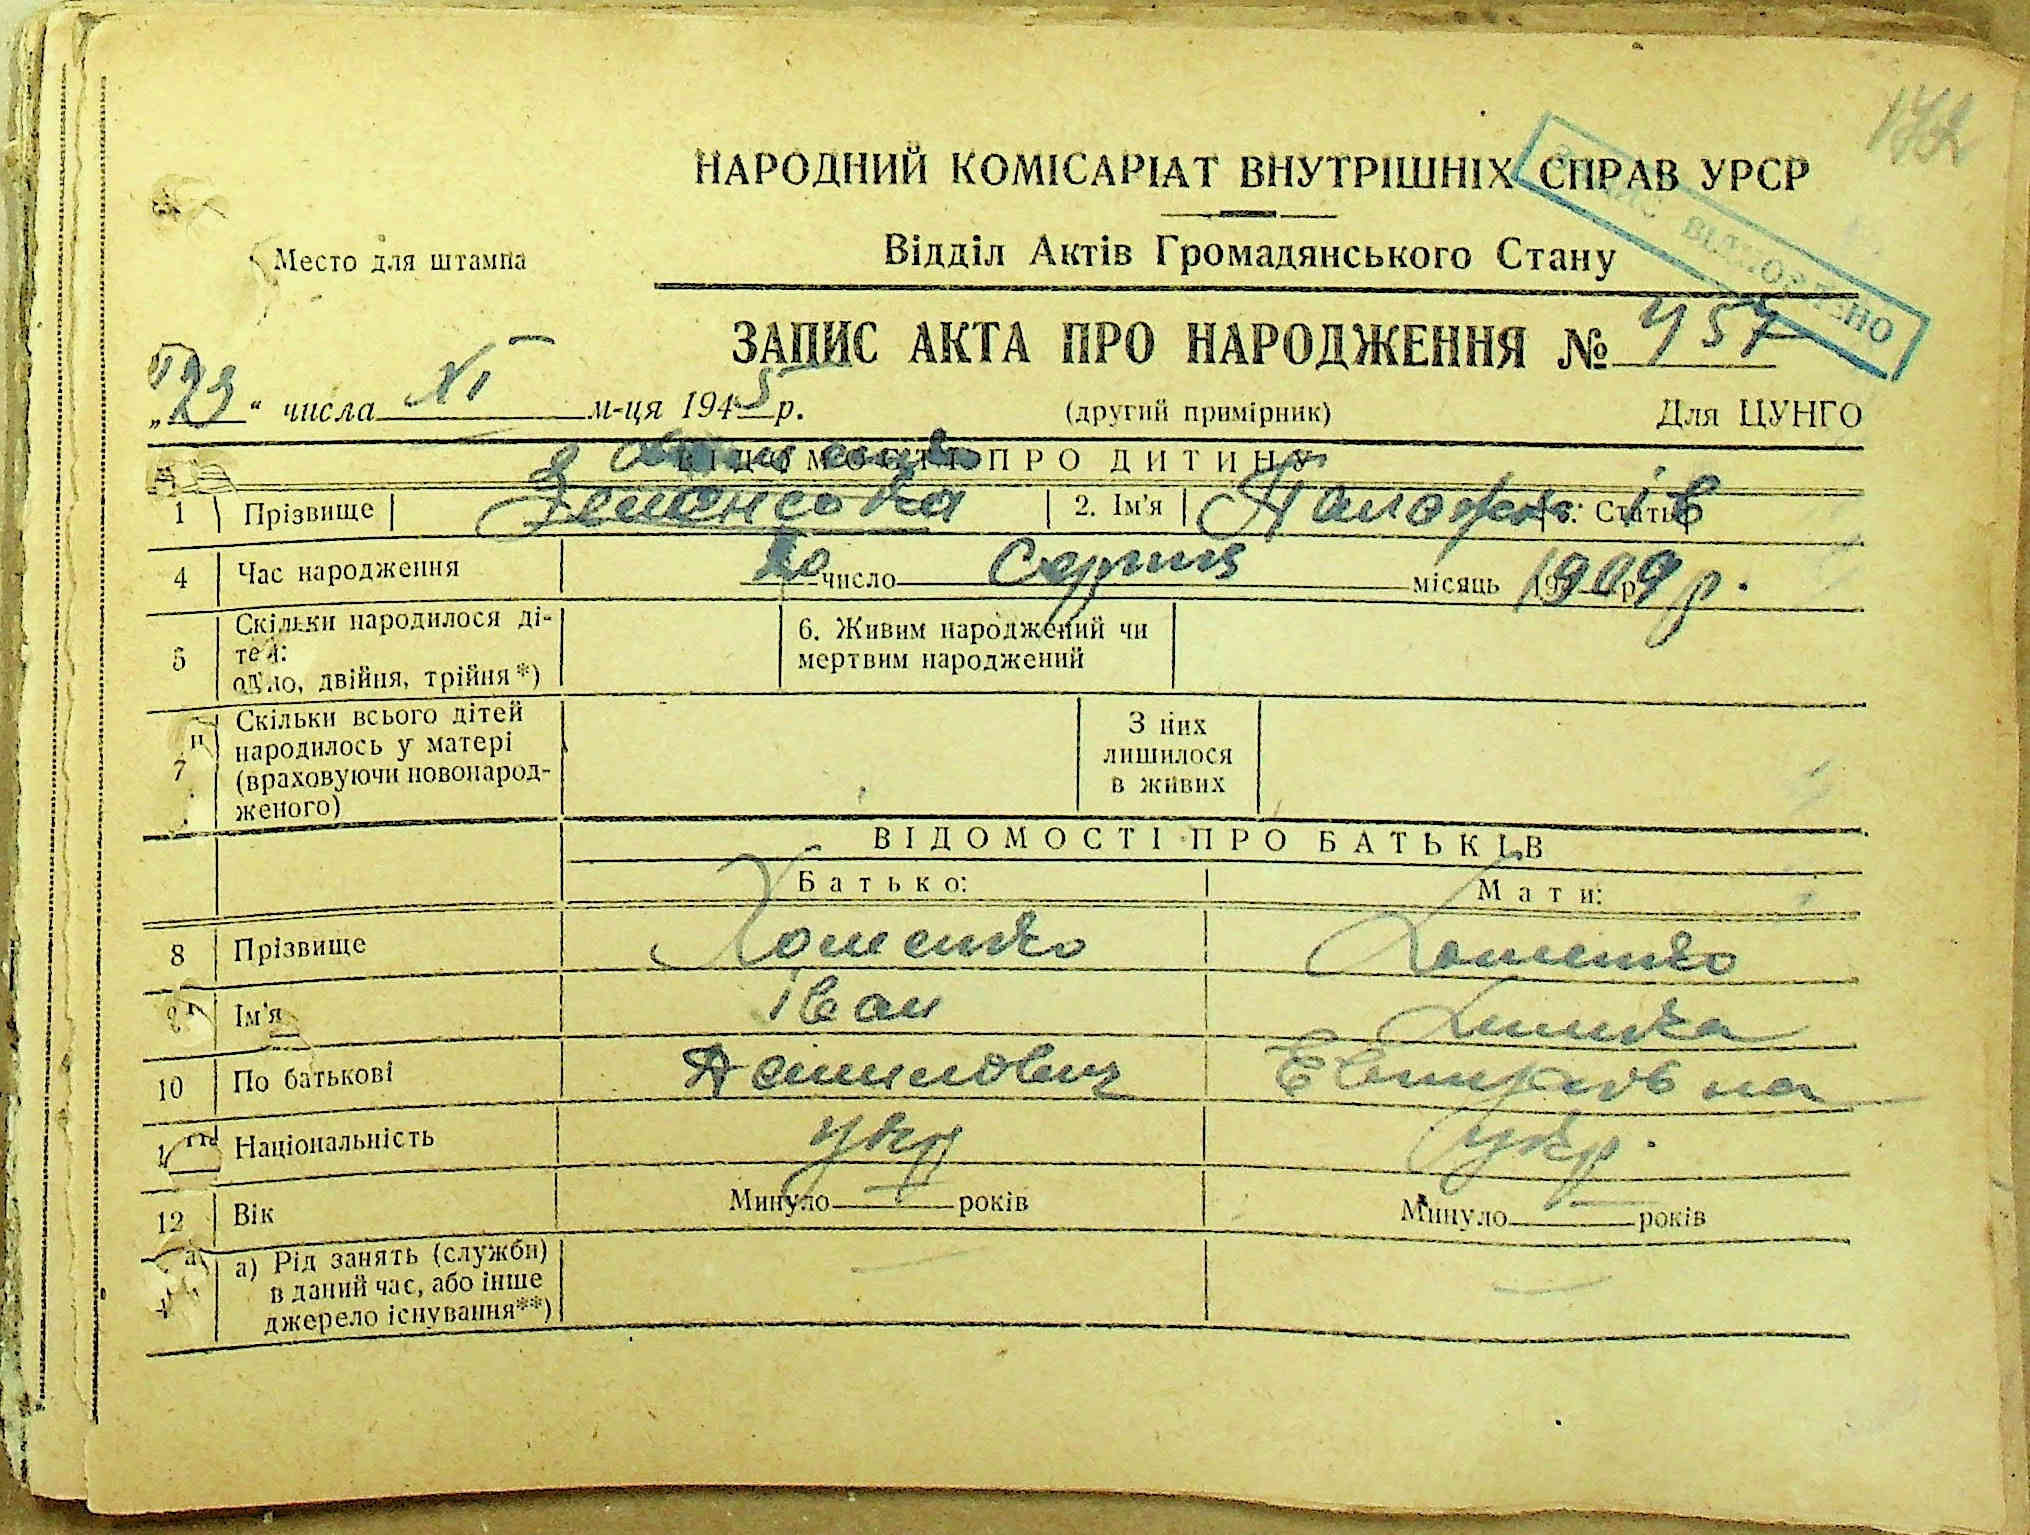 172
НАРОДНИЙ КОМІСАРІАТ ВНУТРІШНІХ СПРАВ УРСР
ВІДНОВЛЕНО
Место для штампа
Відділ Актів Громадянського Стану
ЗАПИС АКТА ПРО НАРОДЖЕННЯ № 457
„23“ числа XI м-ця 1945 р. (другий примірник) Для ЦУНГО
ВІДОМОСТІ ПРО ДИТИНУ
1 Прізвище 2. Ім'я 3. Стать
4 Час народження 20 число Серпня місяць 1909 р.
5 Скільки народилося ді-
тей:
одно, двійня, трійня*)
6. Живим народжений чи
мертвим народжений
7 Скільки всього дітей
народилось у матері
(враховуючи новонарод-
женого)
З них
лишилося
в живих
ВІДОМОСТІ ПРО БАТЬКІВ
Батько: Мати:
8 Прізвище Хоменко Хоменко
Ім'я Іван
10 По батькові
Національність укр укр.
12 Вік Минуло років Минуло років
а) Рід занять (служби)
в даний час, або інше
джерело існування**)